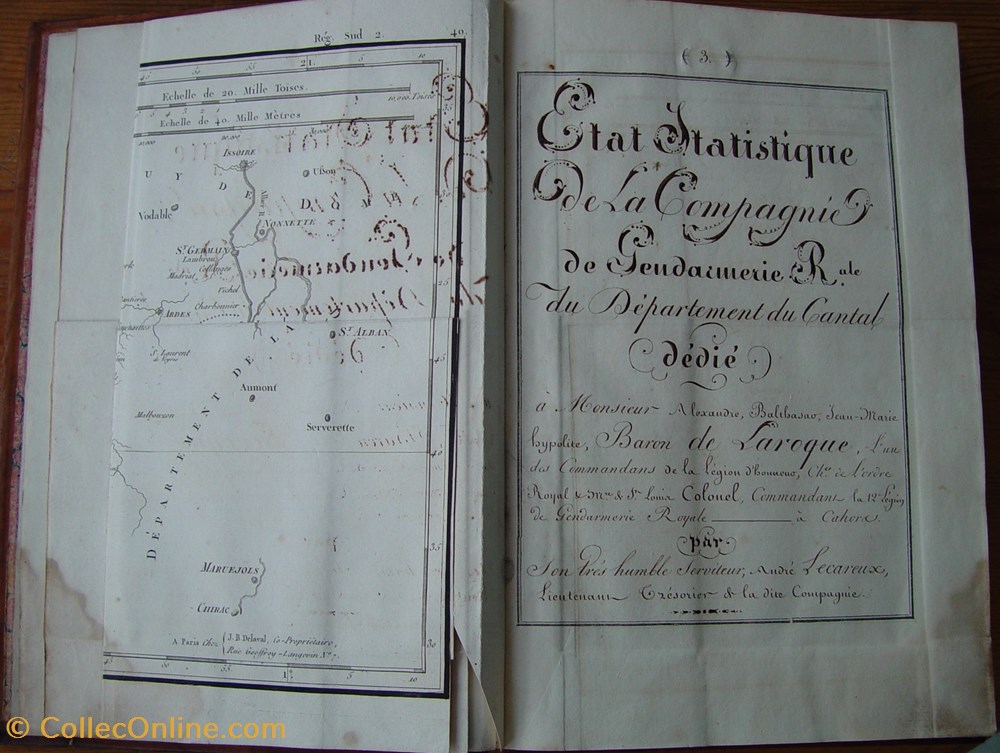 Rég. Sud 2.
40.
45
50
55
21.
5
10
Echelle de 20. Mille Toises.
10,000. Toises
Echelle de 40. Mille Mètres.
10,000
20,000
30,000
35
ISSOIRE
Usson
UY DE DÔME
Vodable
Allier R.
NONNETTE
ST GERMAIN
Lambron
Madriat
Collanges
Vichel
Charbonnier
ARDES
ST ALBAN
St Laurent
45
Aumont
Malbouzon
Serverette
40
DÉPARTEMENT DE LA
35
MARUEJOLS
CHIRAC
A Paris Chez
J. B. Delaval, Co-Propriétaire,
Rue Geoffroy-Langevin N° 7.
30
50
55
5
10
( 3. )
Etat Statistique
de La Compagnie
de Gendarmerie R.ale
du Département du Cantal
dédié
à Monsieur Alexandre, Balthasar, Jean-Marie
hypolite, Baron de Laroque, L'un
des Commandans de la légion d'honneur, Cher de l'ordre
Royal & Mre & St Louis Colonel, Commandant la 12e Légion
de Gendarmerie Royale à Cahors.
par
Son très humble Serviteur, André Lecareux,
Lieutenant Trésorier & la dite Compagnie.
© CollecOnline.com